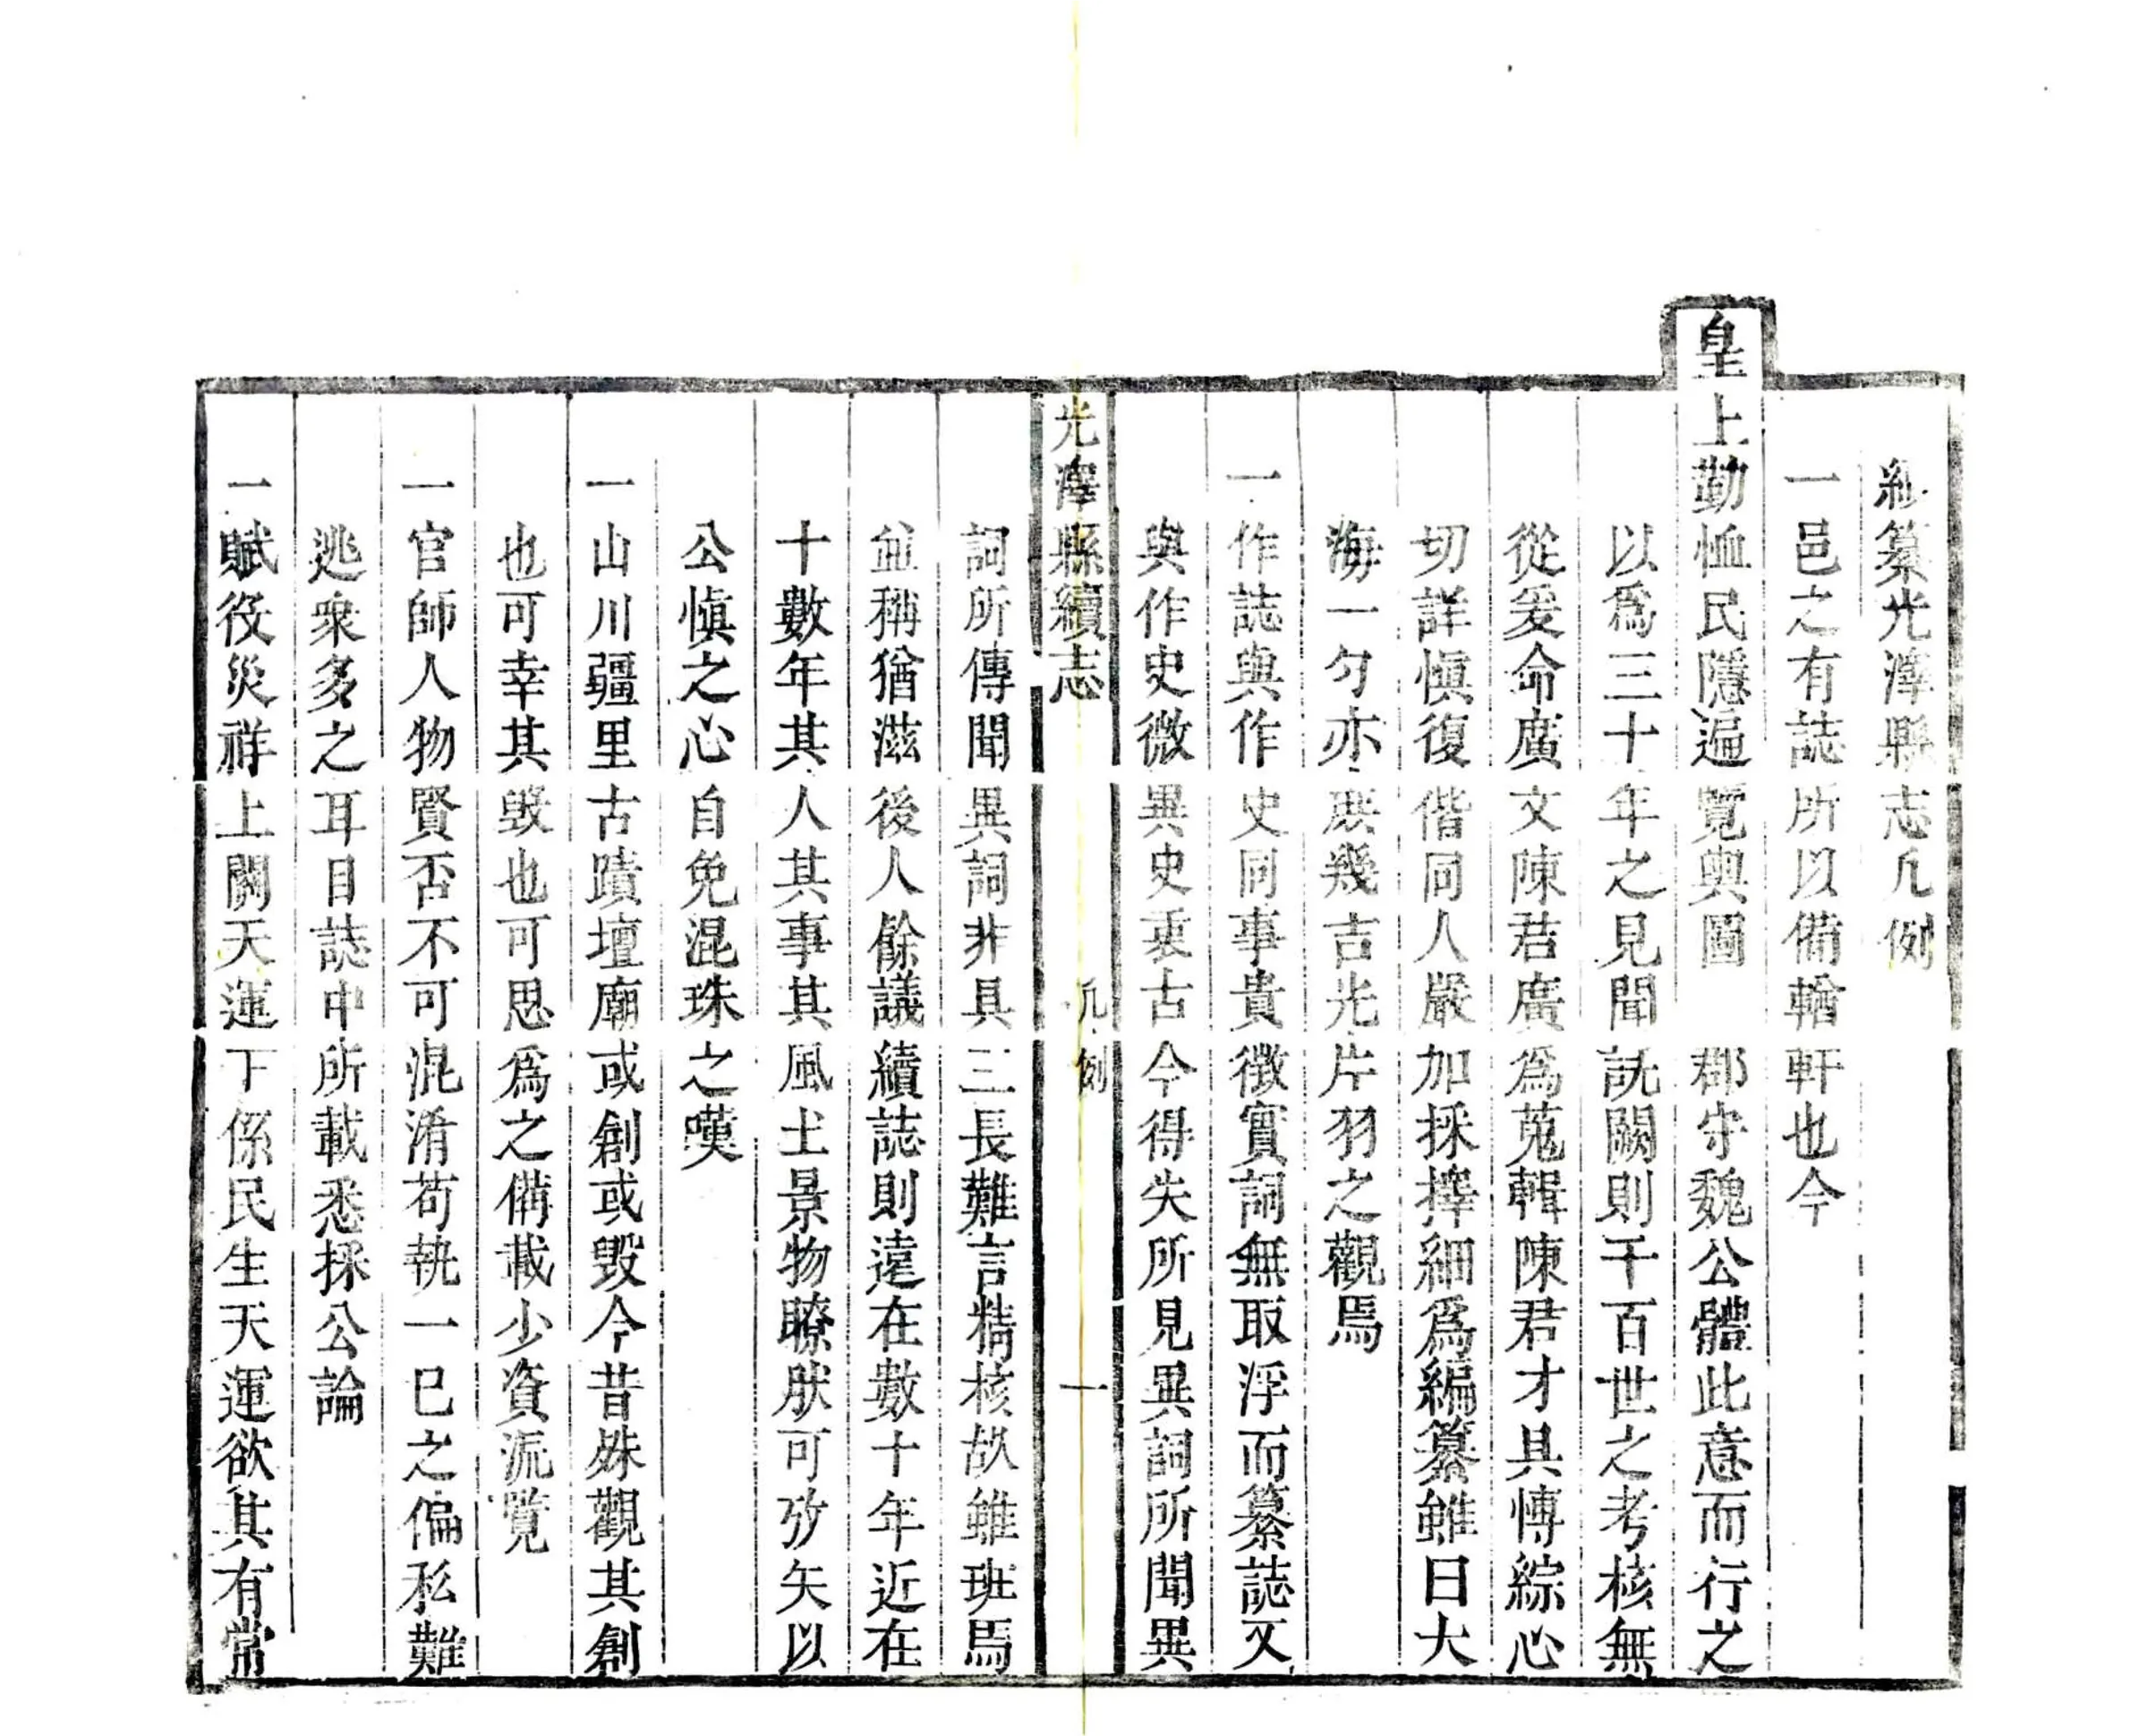 纂光澤縣志凡例
一邑之有誌所以備輶軒也今
皇上勤恤民隱遍覽輿圖　郡守魏公體此意而行之
以爲三十年之見聞旣闕則千百世之考核無
從爰命廣文陳君廣爲蒐輯陳君才具愽綜心
切詳愼復偕同人嚴加採擇細爲編纂雖曰大
海一勺亦庶幾吉光片羽之觀焉
一作誌與作史同事貴徴實詞無取浮而纂誌又
與作史微異史衷古今得失所見異詞所聞異
光澤縣續志
凡例
一
詞所傳聞異詞非具三長難言精核故雖班馬
並稱猶滋後人餘議續誌則遠在數十年近在
十數年其人其事其風土景物瞭然可攷矣以
公愼之心自免混珠之嘆
一山川疆里古蹟壇廟或創或毀今昔殊觀其創
也可幸其毀也可思爲之備載少資流覽
一官師人物賢否不可混淆苟執一已之偏私難
逃衆多之耳目誌中所載悉採公論
一賦役災祥上關天運下係民生天運欲其有常